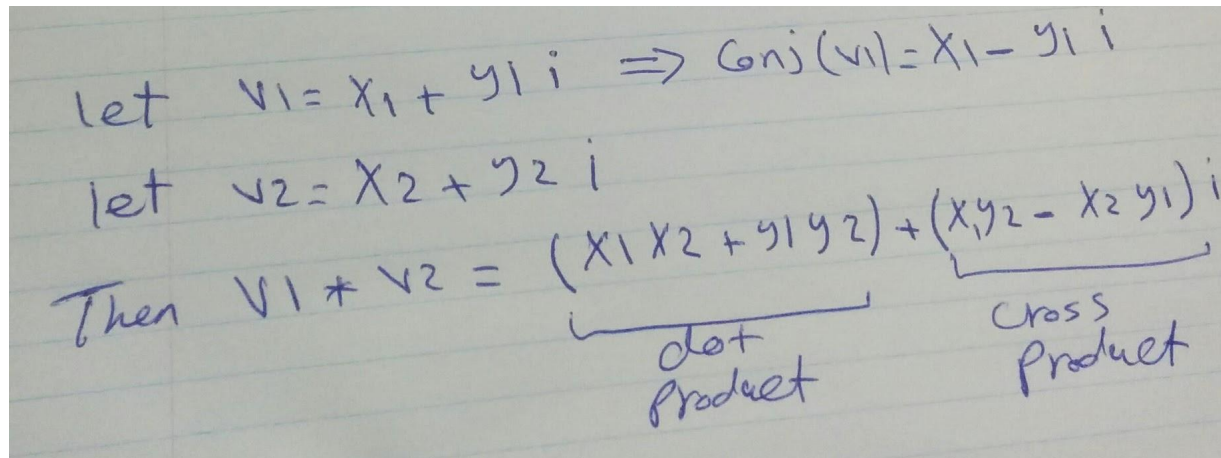 let v1 = x1 + y1 i ⇒ Conj(v1) = x1 - y1 i
let v2 = x2 + y2 i
Then v1 * v2 = (x1 x2 + y1 y2) + (x1 y2 - x2 y1) i
dot product
cross product